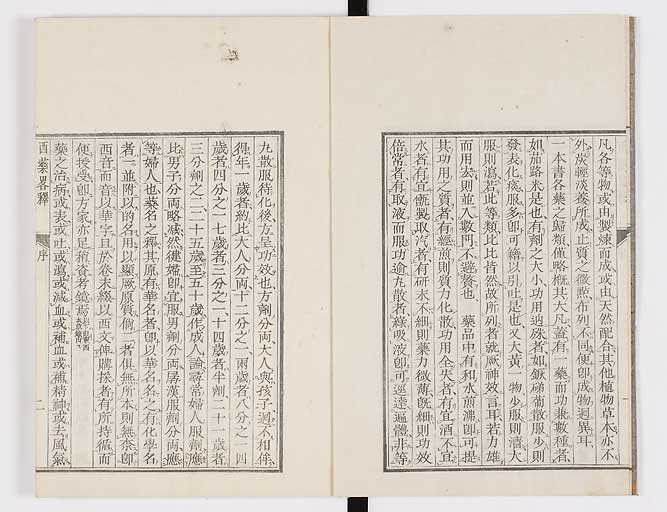 凡各等物或由製煉而成或由天然配合其他植物草本亦不
外炭輕淡養所成止質之微點布列不同便卽成物迥異耳
一本書各藥之歸類僅略概其大凡蓋有一藥而功兼數種者
如茄路米是也有劑之大小功用迥殊者如銻磠散服少則
發表化痰服多卽可藉以引吐是也又大黃一物少服則瀆大
服則瀉若此等類比比皆然故所列者就厥神效言耳若力雄
而用去則並入數門不避贅也 藥品中有和水煎濾卽可提
其功用之質者有經煎則質力化散功用全失者有宜酒不宜
水者有宜甑製取汽者有研末不細則藥力微薄旣細則功效
倍常者有取液而服功逾丸散者緣吸液卽可逕達遍體非等
丸散服待化後方呈功效也方劑分兩大人與孩子迥不相侔
得年一歲者約比大人分兩十二分之一兩歲者八分之一四
歲者四分之一七歲者三分之一十四歲者半劑二十一歲者
三分劑之二二十五歲至五十歲作成人論尋常婦人服劑應
比男子分兩略減然健婦卽宜服男劑分兩孱漢服劑分兩應
等婦人也藥名之釋其原有華名者卽以華名名之有化學名
者一並附以的名用以顯厥原質倘二者俱無所本則無柰卽
西音而音以華字且於卷末綴以西文俾購採者有所持循而
便授受卽方家亦足稽資考鏡焉
藥之治病或表或吐或瀉或減血或補血或補精神或去風氣
西藥畧釋 序 二